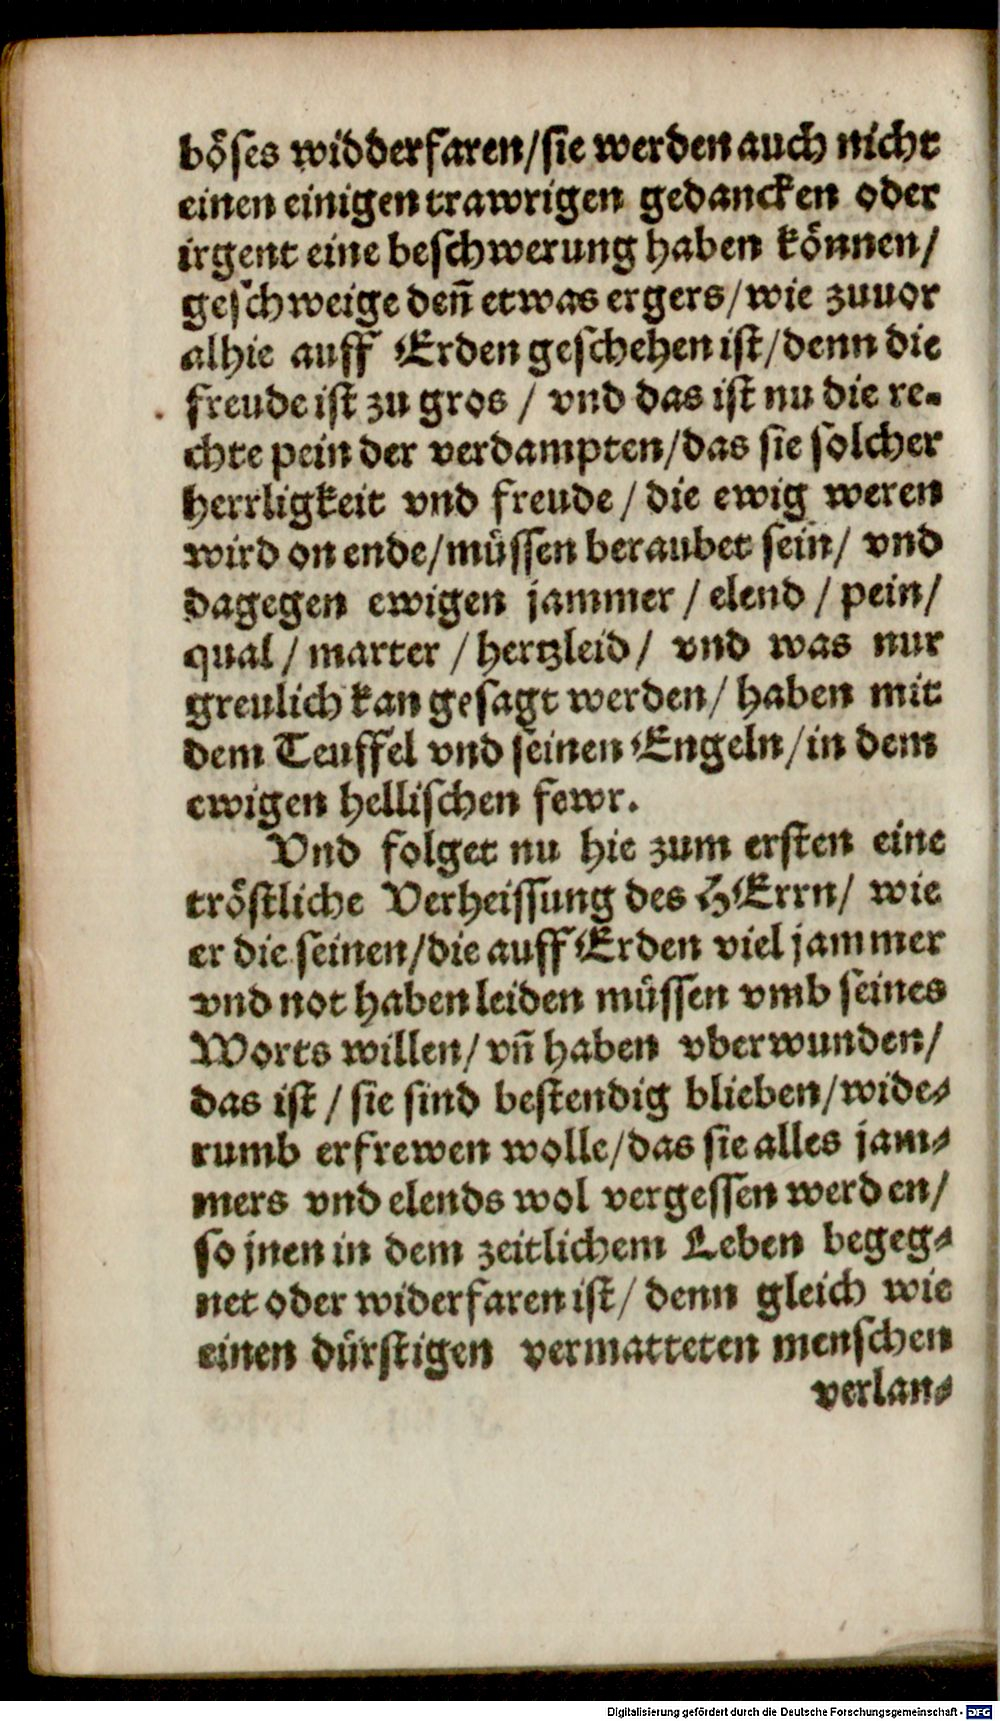 böses widderfaren/sie werden auch nicht
einen einigen trawrigen gedancken oder
irgent eine beschwerung haben können/
geschweige deñ etwas ergers/wie zuuor
alhie auff Erden geschehen ist/denn die
freude ist zu gros / vnd das ist nu die re-
chte pein der verdampten/das sie solcher
herrligkeit vnd freude / die ewig weren
wird on ende/müssen beraubet sein/ vnd
dagegen ewigen jammer / elend / pein/
qual / marter / hertzleid / vnd was nur
greulich kan gesagt werden/ haben mit
dem Teuffel vnd seinen Engeln/in dem
ewigen hellischen fewr.
Vnd folget nu hie zum ersten eine
tröstliche Verheissung des HErrn/ wie
er die seinen/die auff Erden viel jammer
vnd not haben leiden müssen vmb seines
Worts willen/ vñ haben vberwunden/
das ist / sie sind bestendig blieben/wide-
rumb erfrewen wolle/das sie alles jam-
mers vnd elends wol vergessen werden/
so jnen in dem zeitlichem Leben begeg-
net oder widerfaren ist/ denn gleich wie
einen dürstigen vermatteten menschen
verlan-
Digitalisierung gefördert durch die Deutsche Forschungsgemeinschaft - DFG